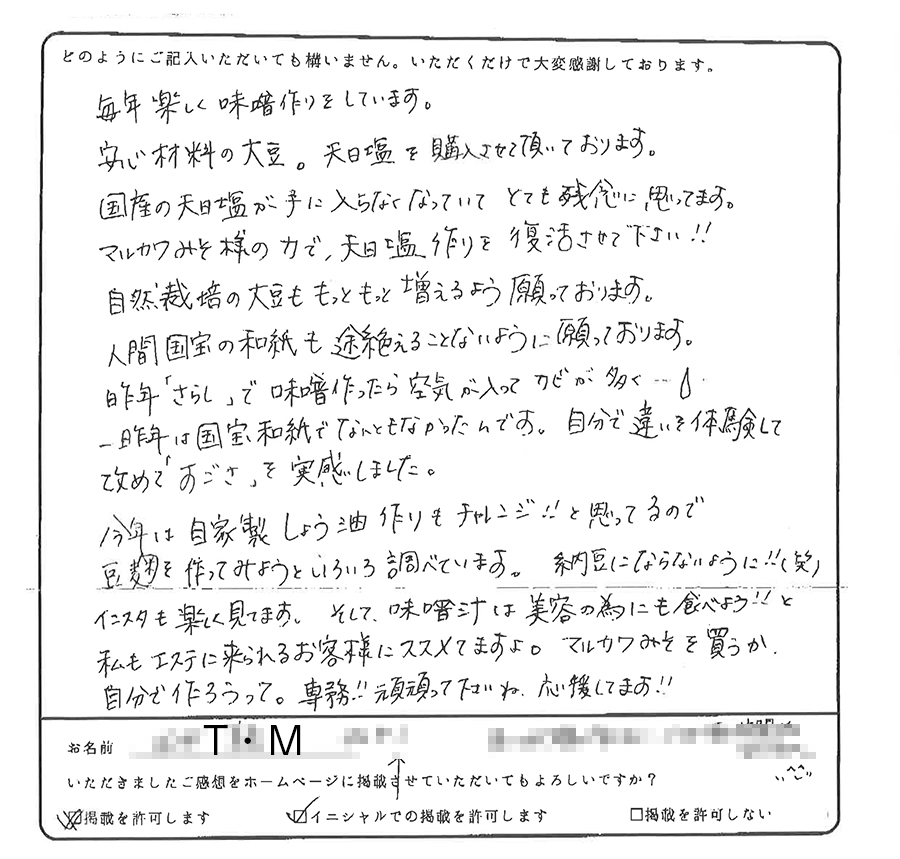 どのようにご記入いただいても構いません。いただくだけで大変感謝しております。
毎年楽しく味噌作りをしています。
安心材料の大豆。天日塩を購入させて頂いております。
国産の天日塩が手に入らなくなっていてとても残念に思ってます。
マルカワみそ様の力で、天日塩作りを復活させて下さい!!
自然栽培の大豆ももっともっと増えるよう願っております。
人間国宝の和紙も途絶えることないように願っております。
昨年「さらし」で味噌作ったら空気が入ってカビが多く…
一昨年は国宝和紙でなんともなかったんです。自分で違いを体験して
改めて「すごさ」を実感しました。
今年は自家製しょう油作りもチャレンジ!!と思ってるので
豆麹を作ってみようといろいろ調べています。納豆にならないように!!(笑)
インスタも楽しく見てます。そして、味噌汁は美容の為にも食べよう!!と
私もエステに来られるお客様にススメてますよ。マルカワみそを買うか、
自分で作ろうって。専務!!頑頑って下さいね、応援してます!!
お名前 T・M
いただきましたご感想をホームページに掲載させていただいてもよろしいですか?
☑掲載を許可します ☑イニシャルでの掲載を許可します □掲載を許可しない